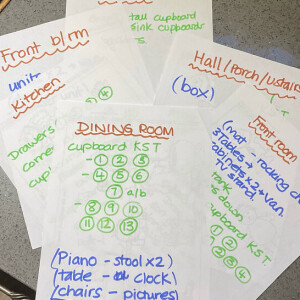 tall cupboard
sink cupboards
Front b/rm
unit
Kitchen
④
Drawers
cup
Hall/Porch/upstairs
(box)
Front room
(mat - rocking ch
3 Tables
cabinets x 2 + Van.
TV stand
tank
s down
upboard KST
① ②
②
③ ④
DINING ROOM
cupboard KST
- ① ② ③
- ④ ⑤ ⑥
⑦ a/b
- ⑧ ⑨ ⑩
⑪ ⑫ ⑬
(Piano - stool x 2)
(table - clock)
(chairs - pictures)